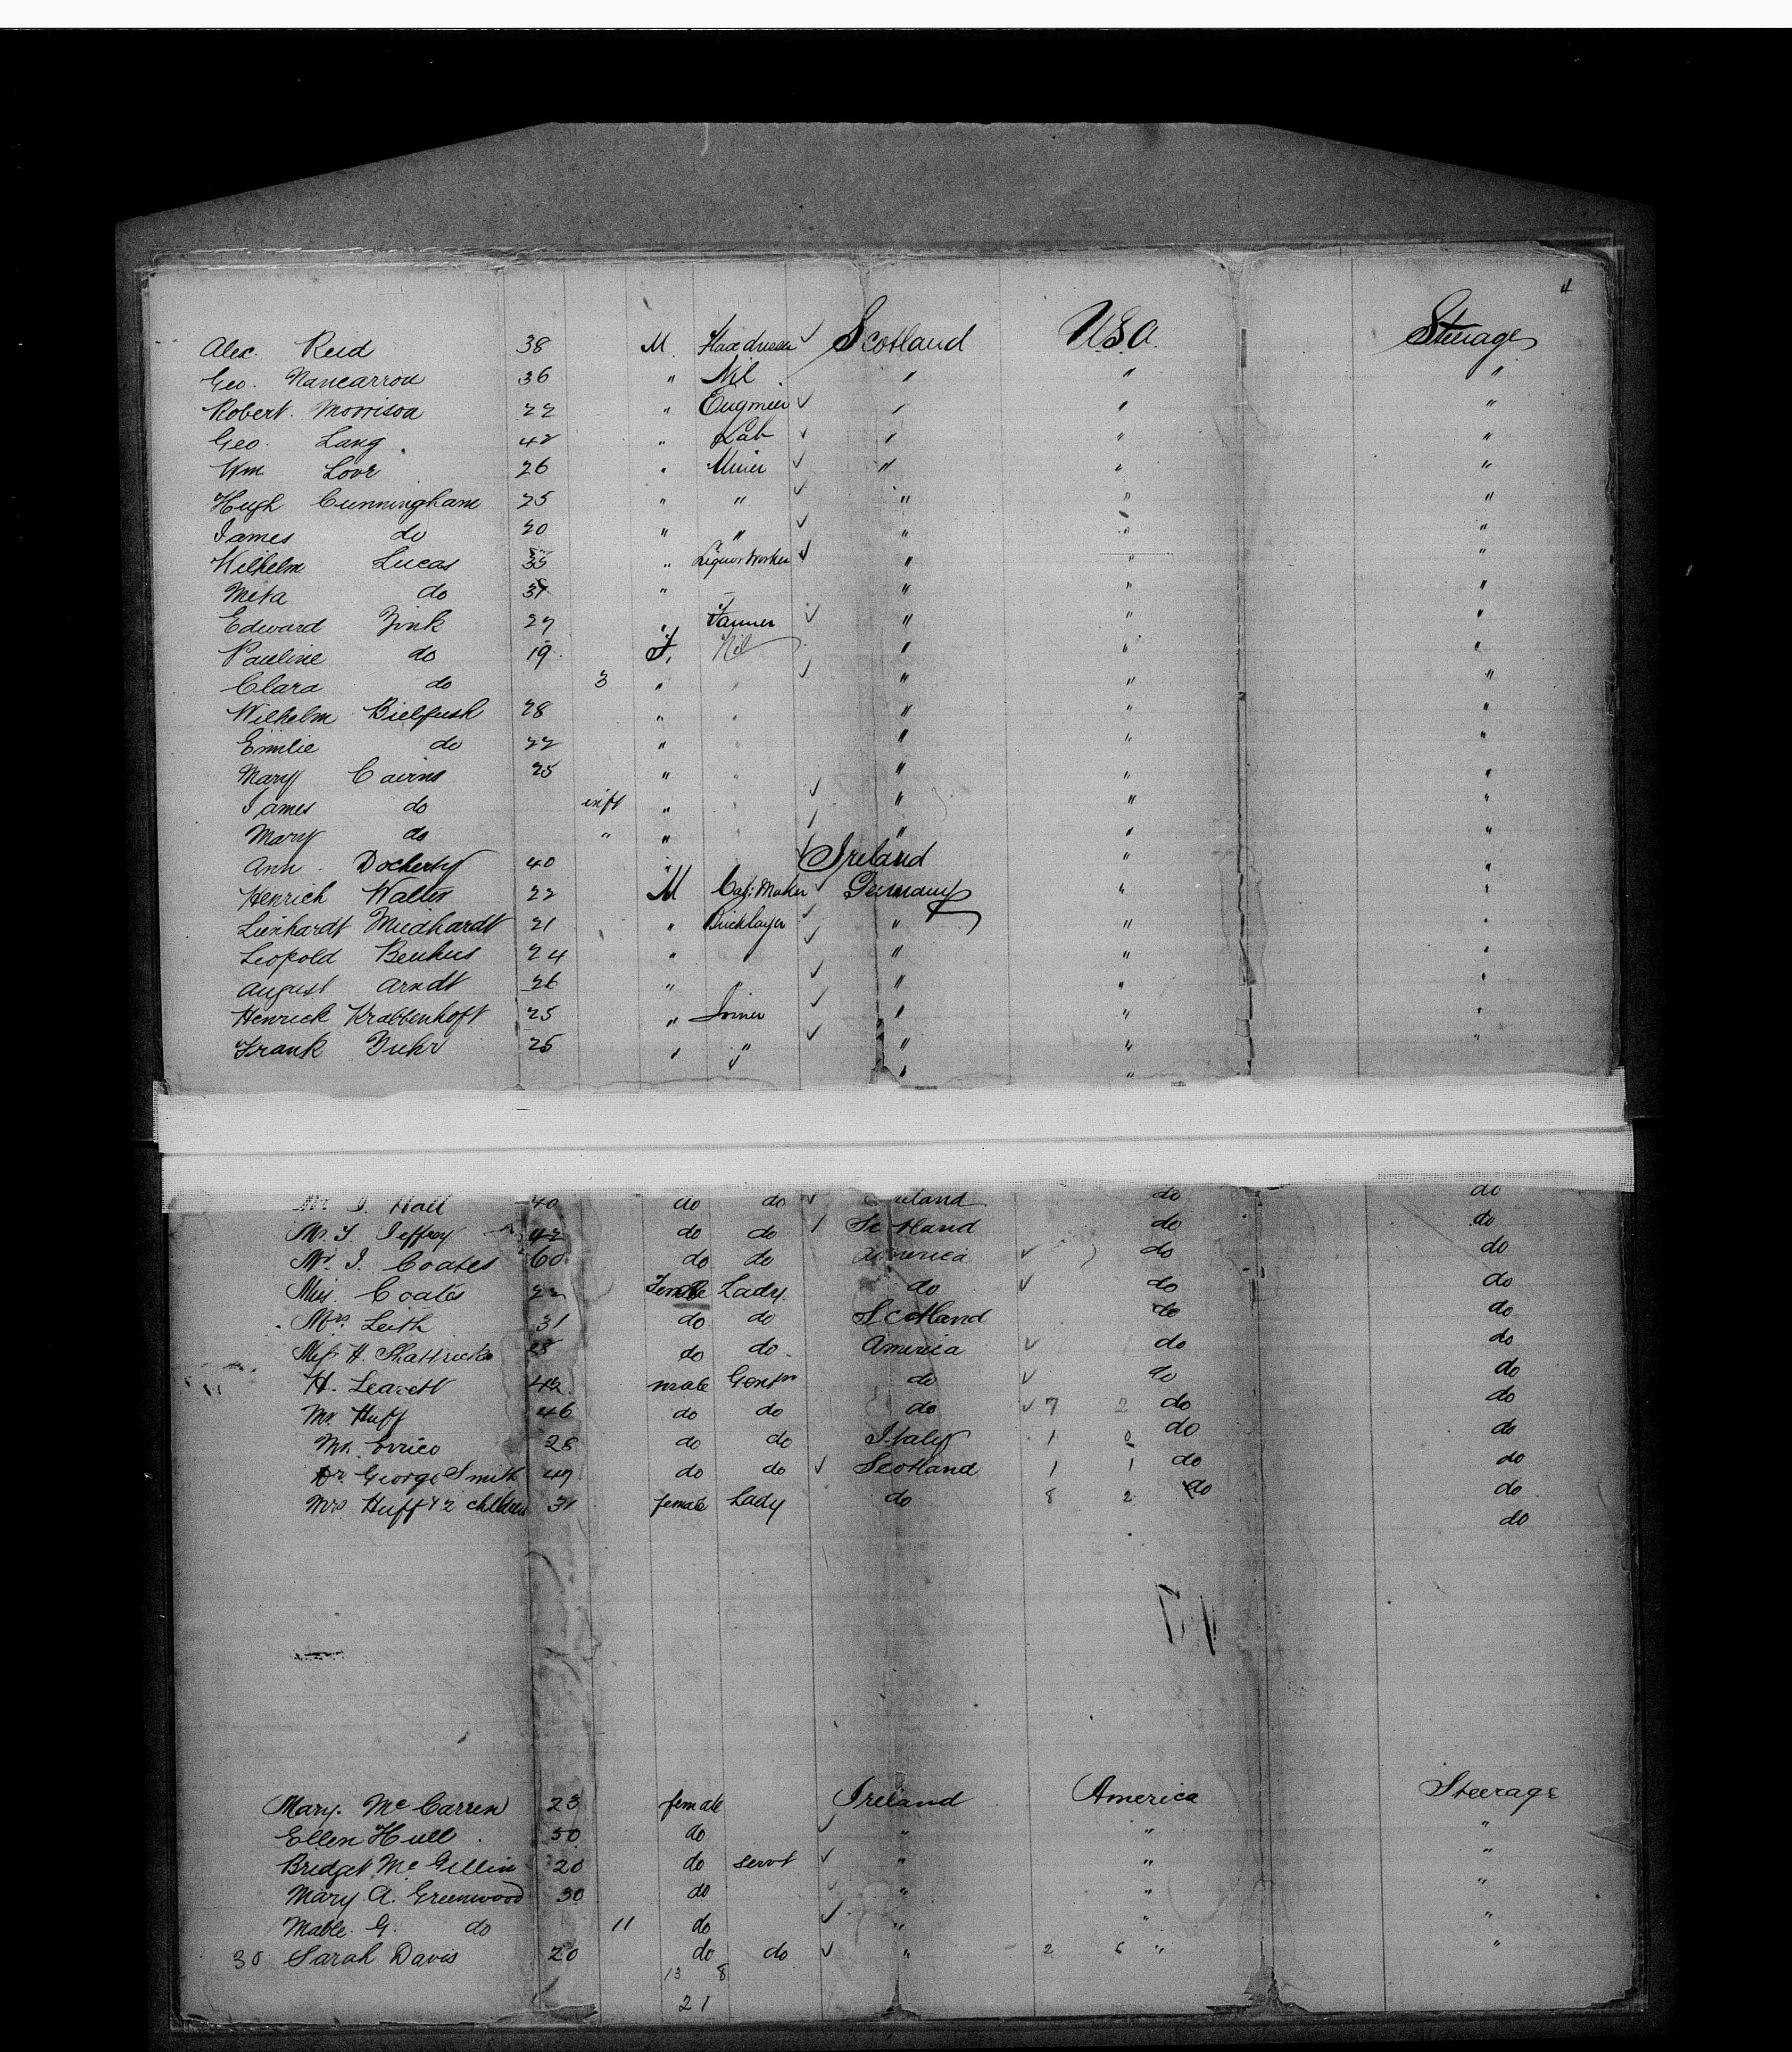 4
Alec. Reid 38 M. Scotland U.S.A. Steerage
Geo. Nancarrow 36 " Nil " " "
Robert Morrison 22 " Engineer " " "
Geo. Lang 42 " Lab " " "
Wm Love 26 " Miner " " "
Hugh Cunningham 25 " " " " "
James do 20 " " " " "
Wilhelm Lucas 35 " Liquor Worker " " "
Meta do " " " "
Edward Zink 27 " Tanner " " "
Pauline do 19 F. Nil " " "
Clara do 3 " " " " "
Wilhelm 28 " " " " "
Emilie do 22 " " " " "
Mary Cairns 25 " " " " "
James do inft " " " " "
Mary do " " " " " "
Ann Docherty 40 " Ireland " "
Henrich Walter 22 M Cab: Maker Germany " "
Lienhardt Miedhardt 21 " Bricklayer " " "
Leopold Benkus 24 " " " " "
August Arndt 26 " " " " "
Henrick Krabbenhoft 25 " Joiner " " "
Frank Zuhr 25 " " " " "
" "
Mr J. Hall 40 do do do do
Mr. J. Jeffroy 42 do do Scotland do do
Mr. J. Coates 60 do do America do do
Miss. Coates 22 Female Lady do do do
Mrs Leith 31 do do Scotland do do
Miss H. Shattuck 28 do do America do do
H. Leavett 42 male Gentn do do do
Mr. Huff 46 do do do 7 2 do do
Mr. Errico 28 do do Italy 1 0 do do
Dr. George Smith 49 do do Scotland 1 1 do do
Mrs Huff & 2 children 31 female Lady do 8 2 do do
do
Mary. McCarren 23 female Ireland America Steerage
Ellen Hull 50 do " " "
Bridget McGellin 20 do servt " " "
Mary. A. Greenwood 30 do " " "
Mable. G. do 11 do " " "
30 Sarah Davis 20 do do " 2 6 " "
13 8
21